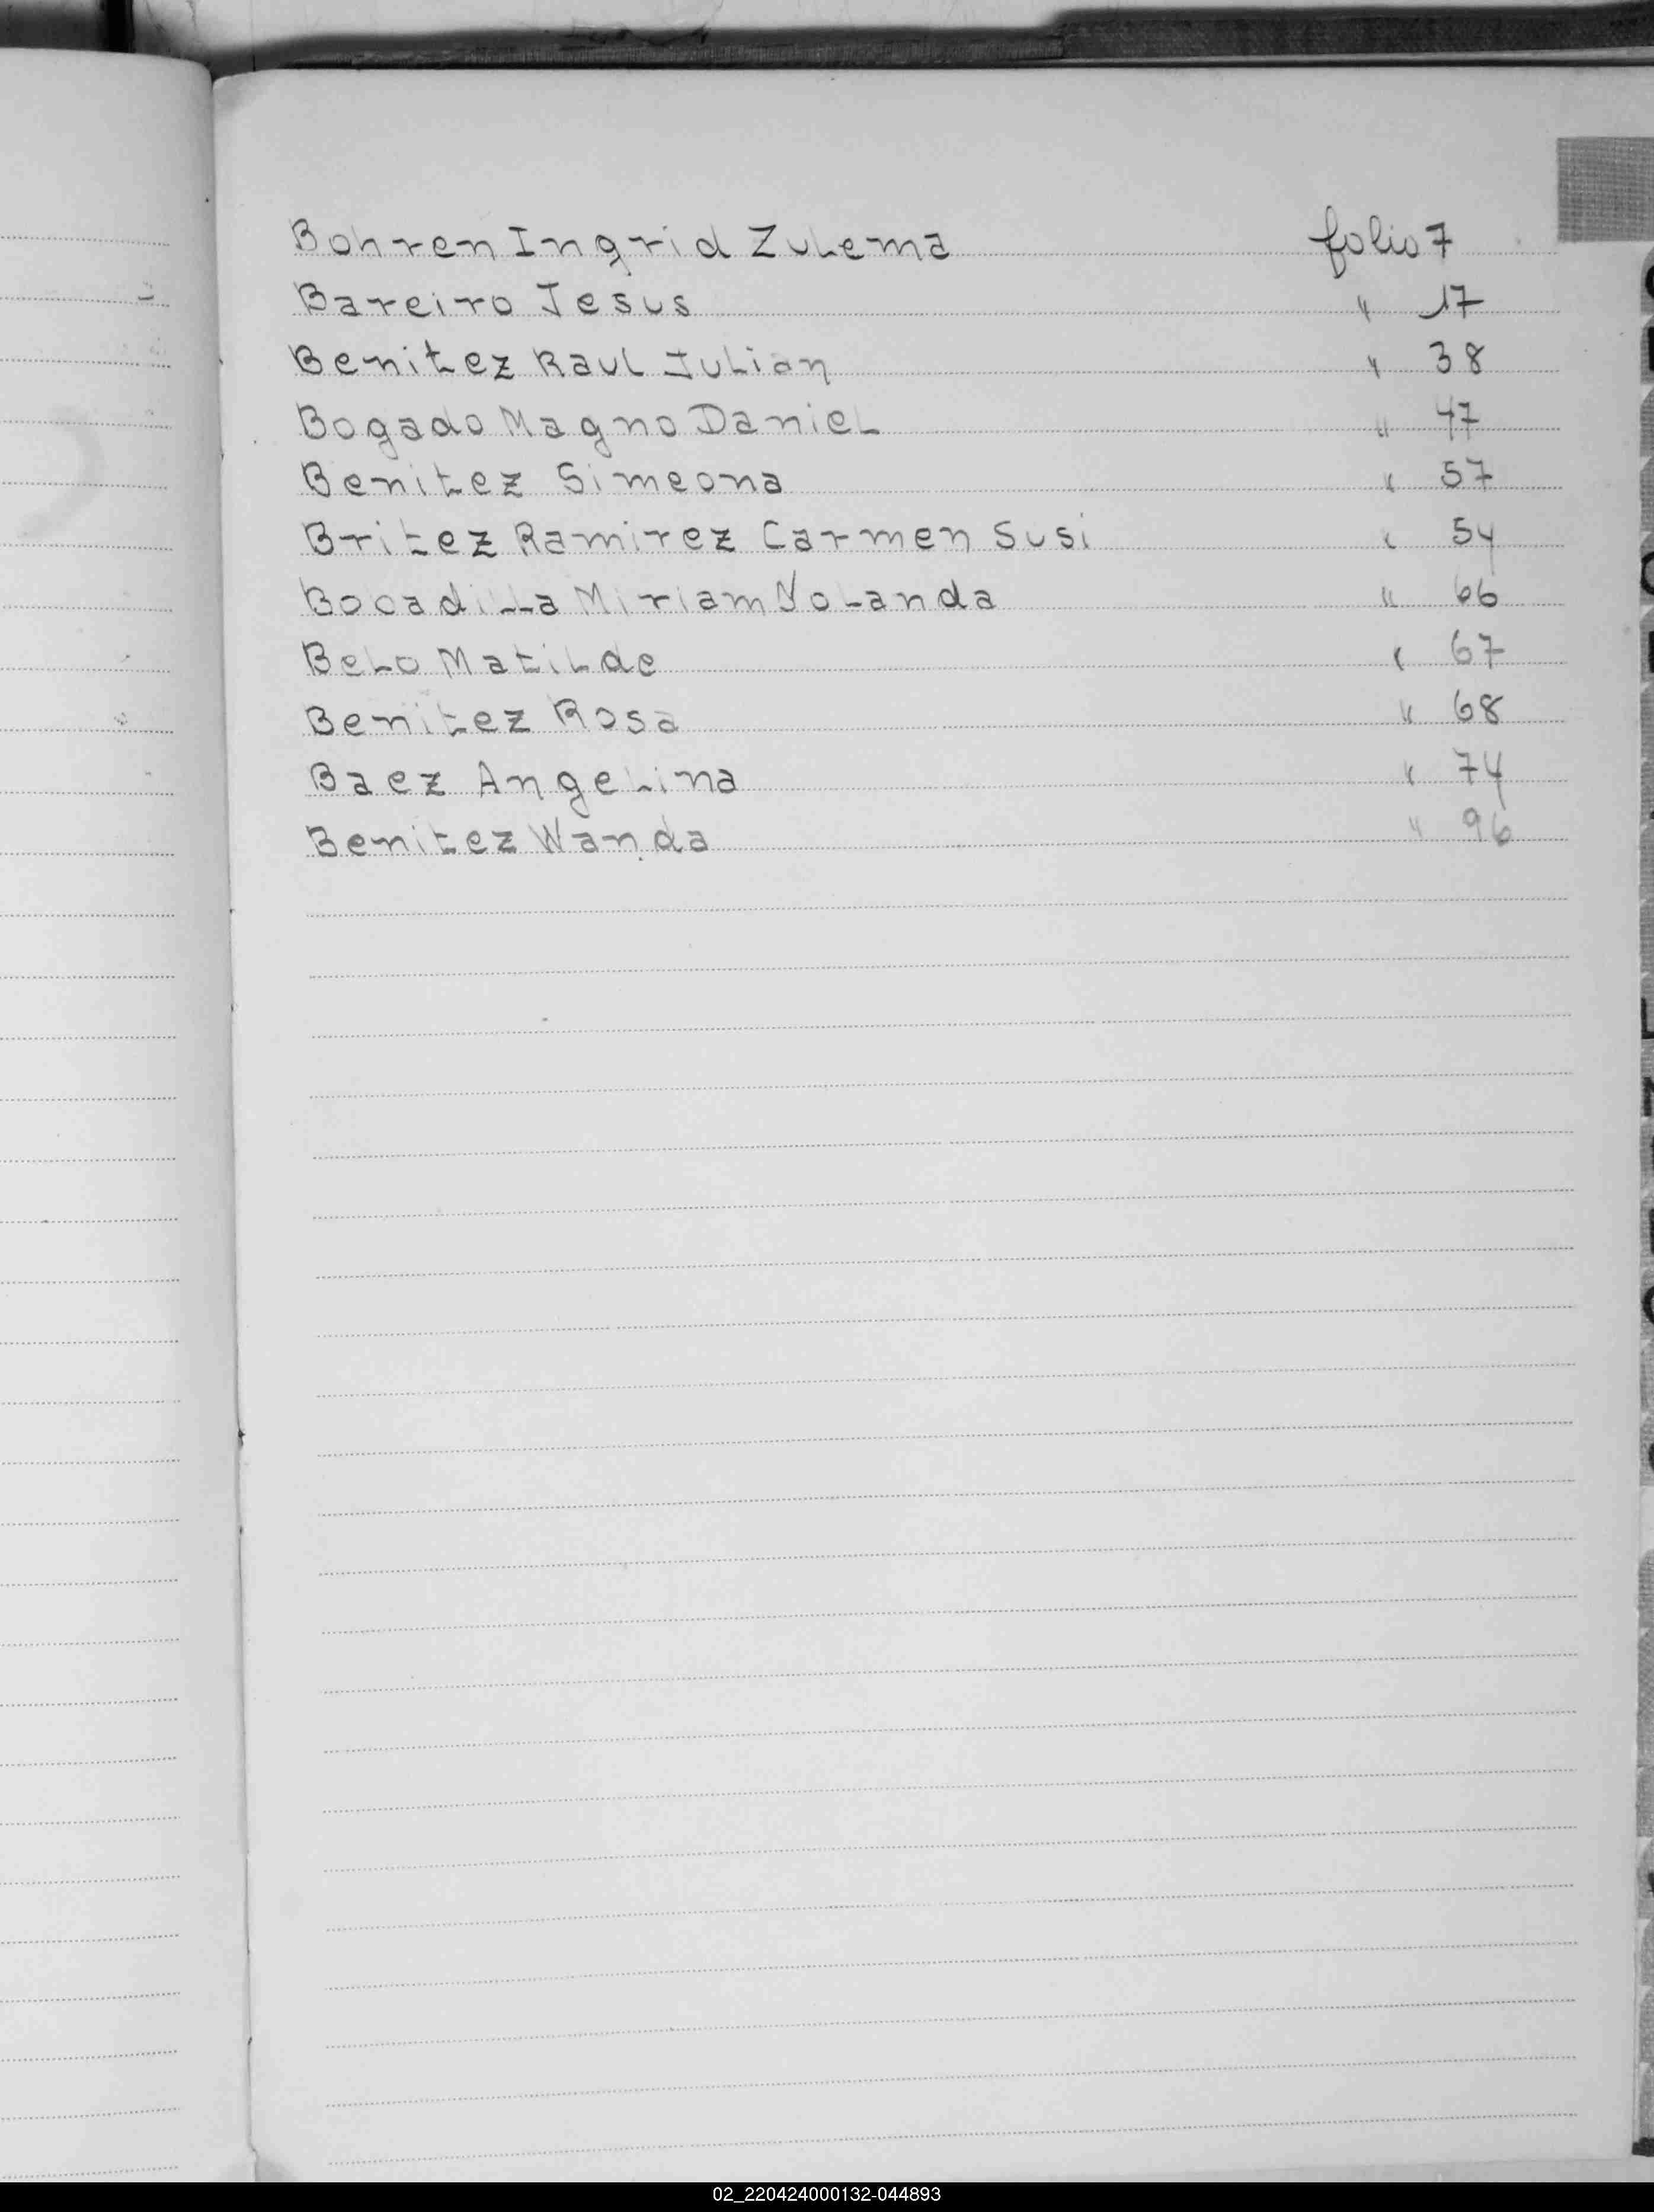 Bohren Ingrid Zulema folio 7
Bareiro Jesus " 17
Benitez Raul Julian " 38
Bogado Magno Daniel " 47
Benitez Simeona " 57
Britez Ramirez Carmen Susi " 54
Bocadilla Miriam Yolanda " 66
Belo Matilde " 67
Benitez Rosa " 68
Baez Angelina " 74
Benitez Wanda " 96
02_220424000132-044893